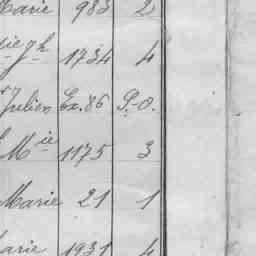 Marie 983 2
1734 4
Julien Ex. 86 P.-o.
Mie 1175 3
Marie 21 1
Marie 1931 4